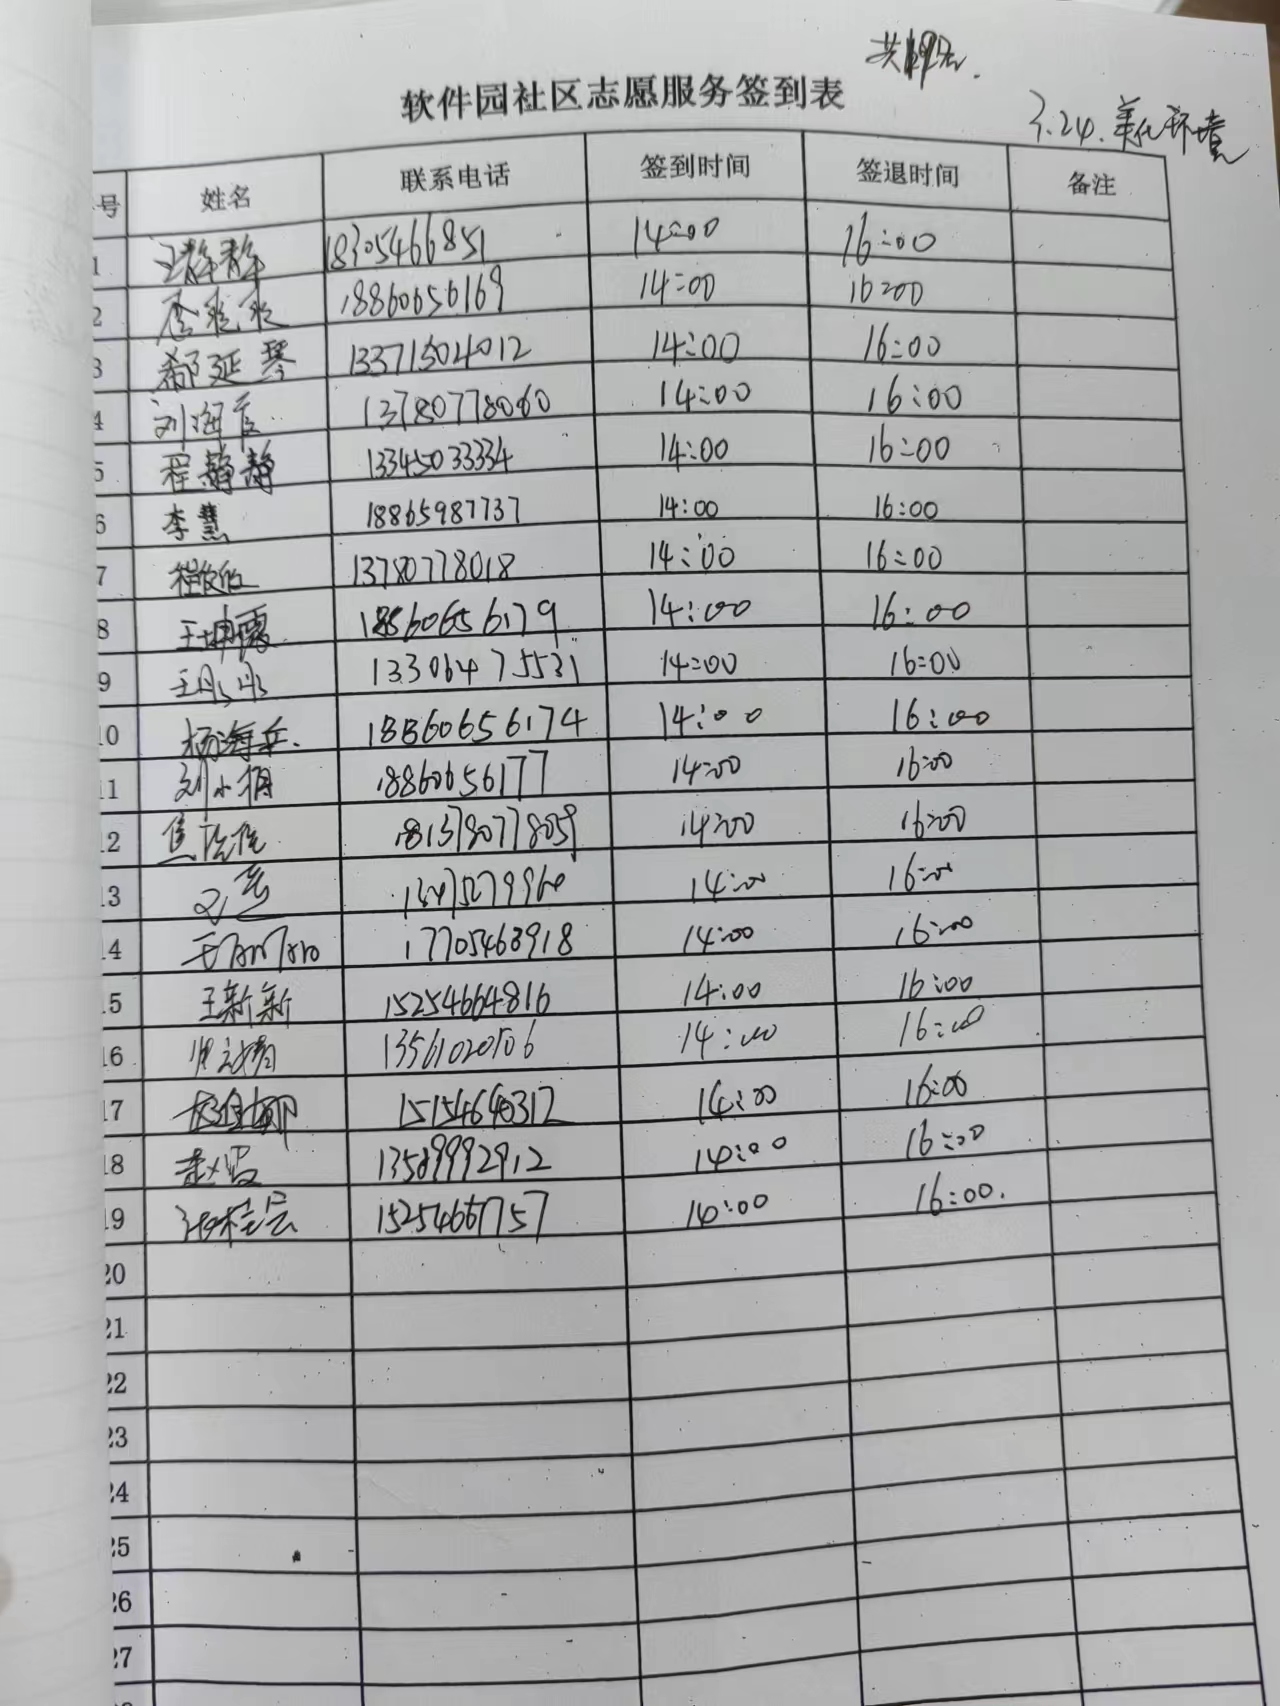 共19人.
软件园社区志愿服务签到表
3.24.美化环境
号 姓名 联系电话 签到时间 签退时间 备注
1 汪静静 18305466851 14:00 16:00
2 18860656169 14:00 16:00
3 郗延琴 13371504012 14:00 16:00
4 刘海 13780778060 14:00 16:00
5 程静静 13345033334 14:00 16:00
6 李慧 18865987737 14:00 16:00
7 13780778018 14:00 16:00
8 王坤霞 18560656179 14:00 16:00
9 王彤彤 13306475531 14:00 16:00
10 杨海兵. 18860656174 14:00 16:00
11 刘小娟 18860656177 14:00 16:00
12 焦 14:00 16:00
13 14:00 16:00
14 王 17705468918 14:00 16:00
15 王新新 15254664816 14:00 16:00
16 13561020506 14:00 16:00
17 15154640312 14:00 16:00
18 13589992912 14:00 16:00
19 14:00 16:00.
20
21
22
23
24
25
26
27